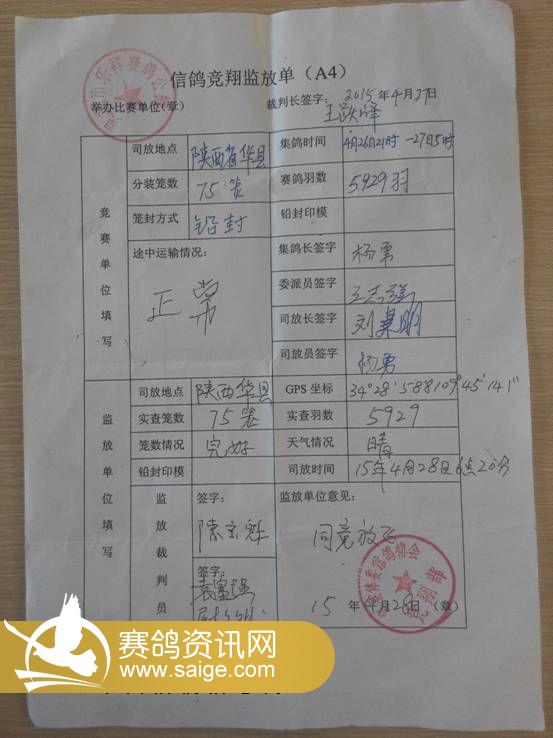 信鸽竞翔监放单（A4）
举办比赛单位(章) 裁判长签字: 2015年4月27日
竞赛单位填写
司放地点 陕西省华县 集鸽时间 4月26日21时—27日5时
分装笼数 75笼 赛鸽羽数 5929羽
笼封方式 铅封 铅封印模
途中运输情况: 集鸽长签字 杨勇
正常 委派员签字
司放长签字
司放员签字 杨勇
监放单位填写
司放地点 陕西华县 GPS坐标 34°28′588 109°45′141"
实查笼数 75笼 实查羽数 5929
笼数情况 完好 天气情况 晴
铅封印模 司放时间 15年4月28日6点20分
监放裁判员 签字: 监放单位意见:
同意放飞
签字:
15年4月28日（章）
赛鸽资讯网
www.saige.com